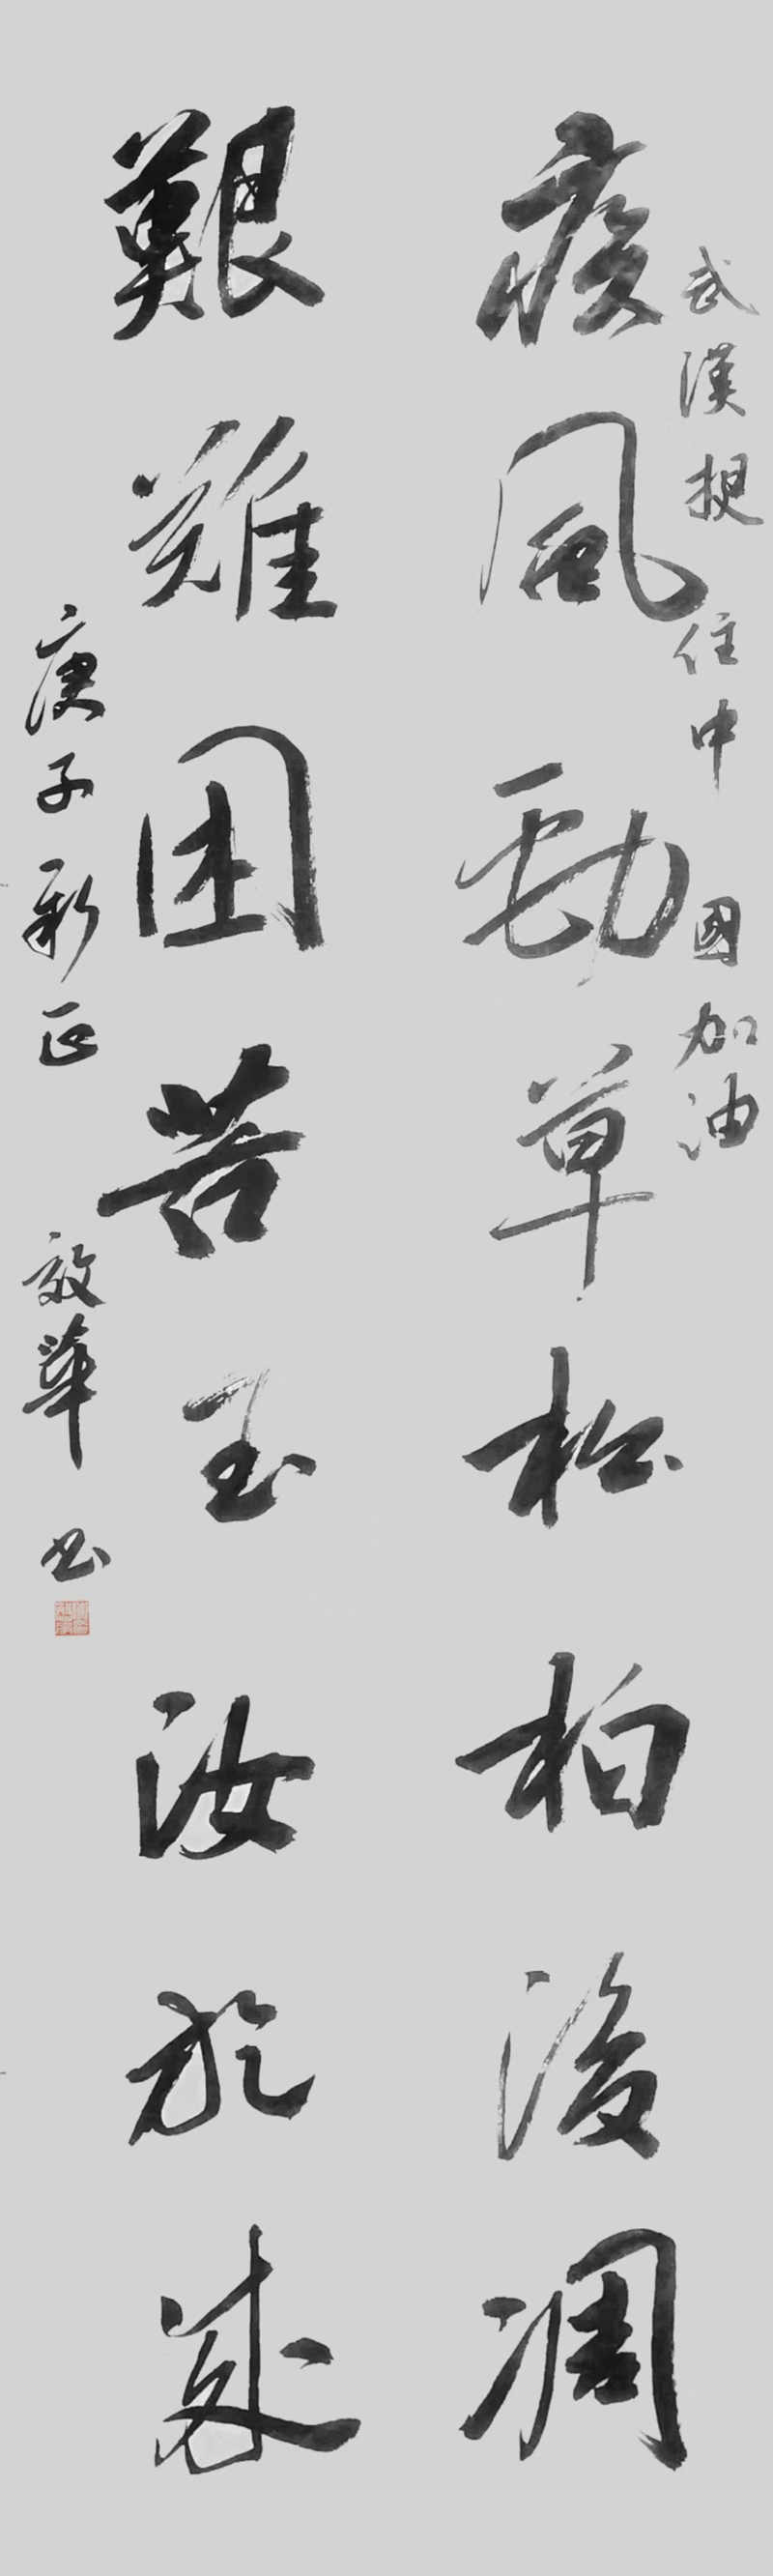 武漢挺住中國加油
疾風勁草松柏後凋
艱難困苦玉汝於成
庚子新正 效華書